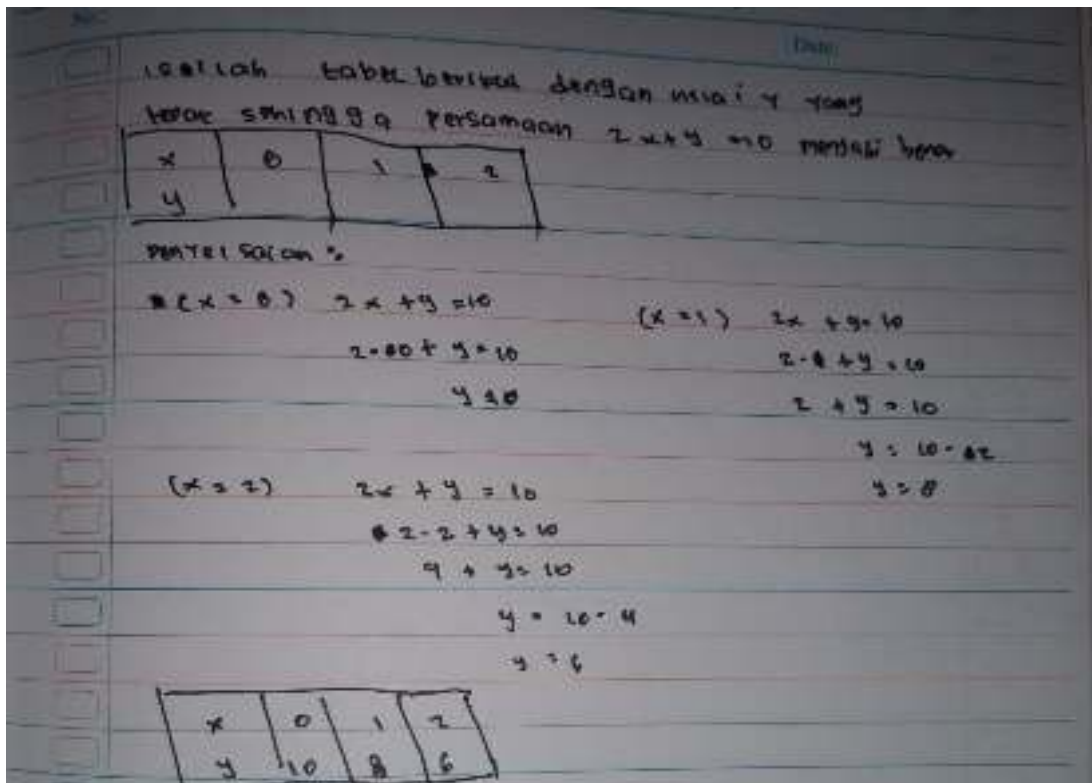 Date:
isilah tabel berikut dengan nilai y yang
tepat sehingga persamaan 2x + y = 10 menjadi benar
x 0 1 2
y
penyelsaian :
(x = 0) 2x + y = 10
2 - 0 + y = 10
y = 10
(x = 1) 2x + y = 10
2 - 1 + y = 10
2 + y = 10
y = 10 - 2
y = 8
(x = 2) 2x + y = 10
2 - 2 + y = 10
4 + y = 10
y = 10 - 4
y = 6
x 0 1 2
y 10 8 6